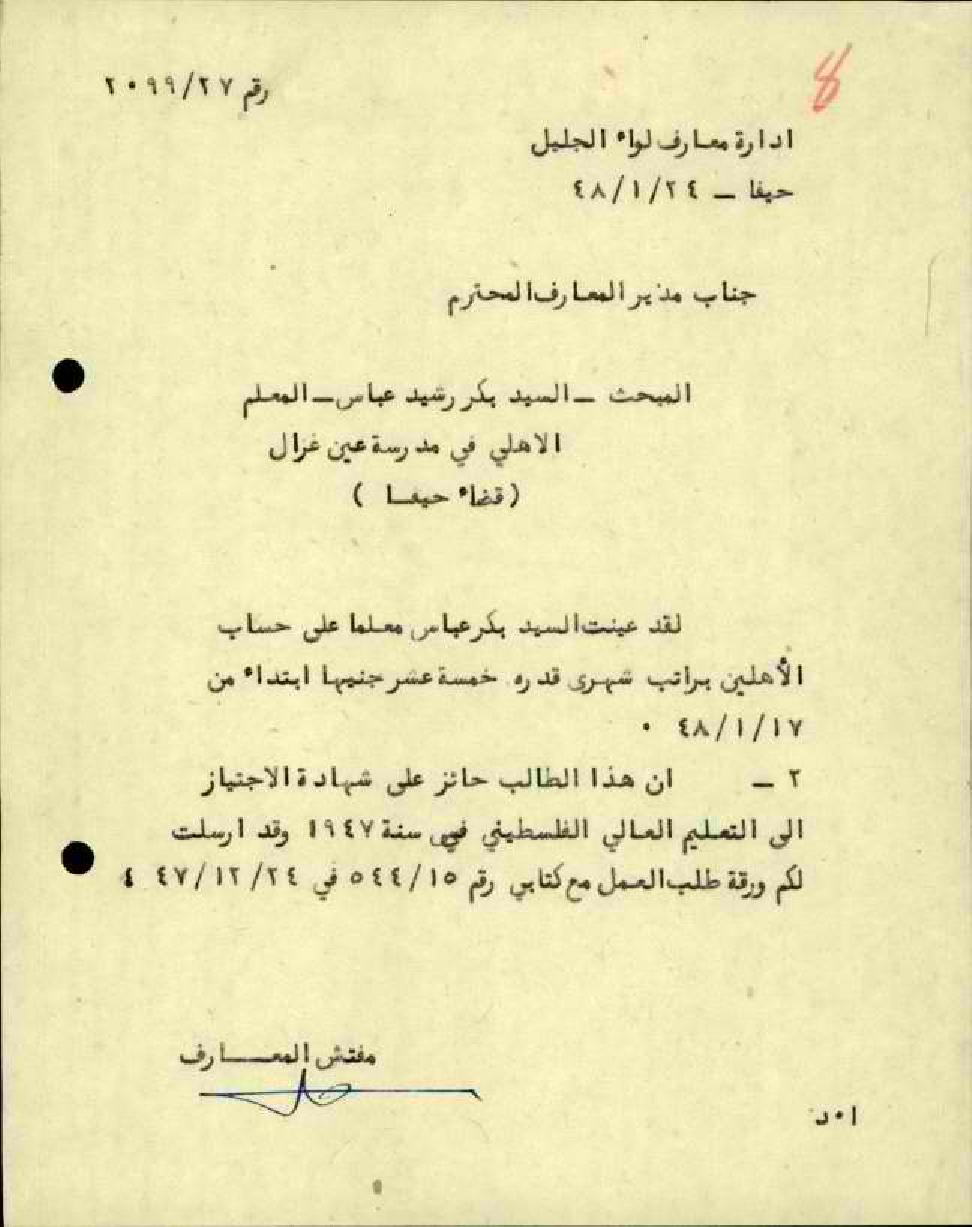 8
رقم ٢٠٩٩/٢٧
ادارة معارف لواء الجليل
حيفا – ٤٨/١/٢٤
جناب مدير المعارف المحترم
المبحث – السيد بكر رشيد عباس – المعلم
الاهلي في مدرسة عين غزال
(قضاء حيفا)
لقد عينت السيد بكر عباس معلما على حساب
الأهلين براتب شهرى قدره خمسة عشر جنيها ابتداء من
٤٨/١/١٧ ٠
٢ – ان هذا الطالب حائز على شهادة الاجتياز
الى التعليم العالي الفلسطيني في سنة ١٩٤٧ وقد ارسلت
لكم ورقة طلب العمل مع كتابي رقم ٥٤٤/١٥ في ٤٧/١٢/٢٤
مفتش المعارف
ا٠د